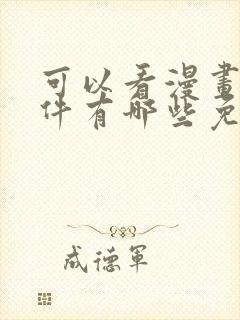 可以看漫畫
件有哪些免
成德軍